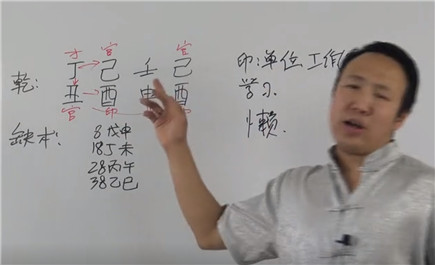 才 官 官
乾: 丁 己 壬 己
丑 酉 申 酉
官 印 印
缺木: 8戊申
18丁未
28丙午
38乙巳
印:单位 工作
学习.
懒.